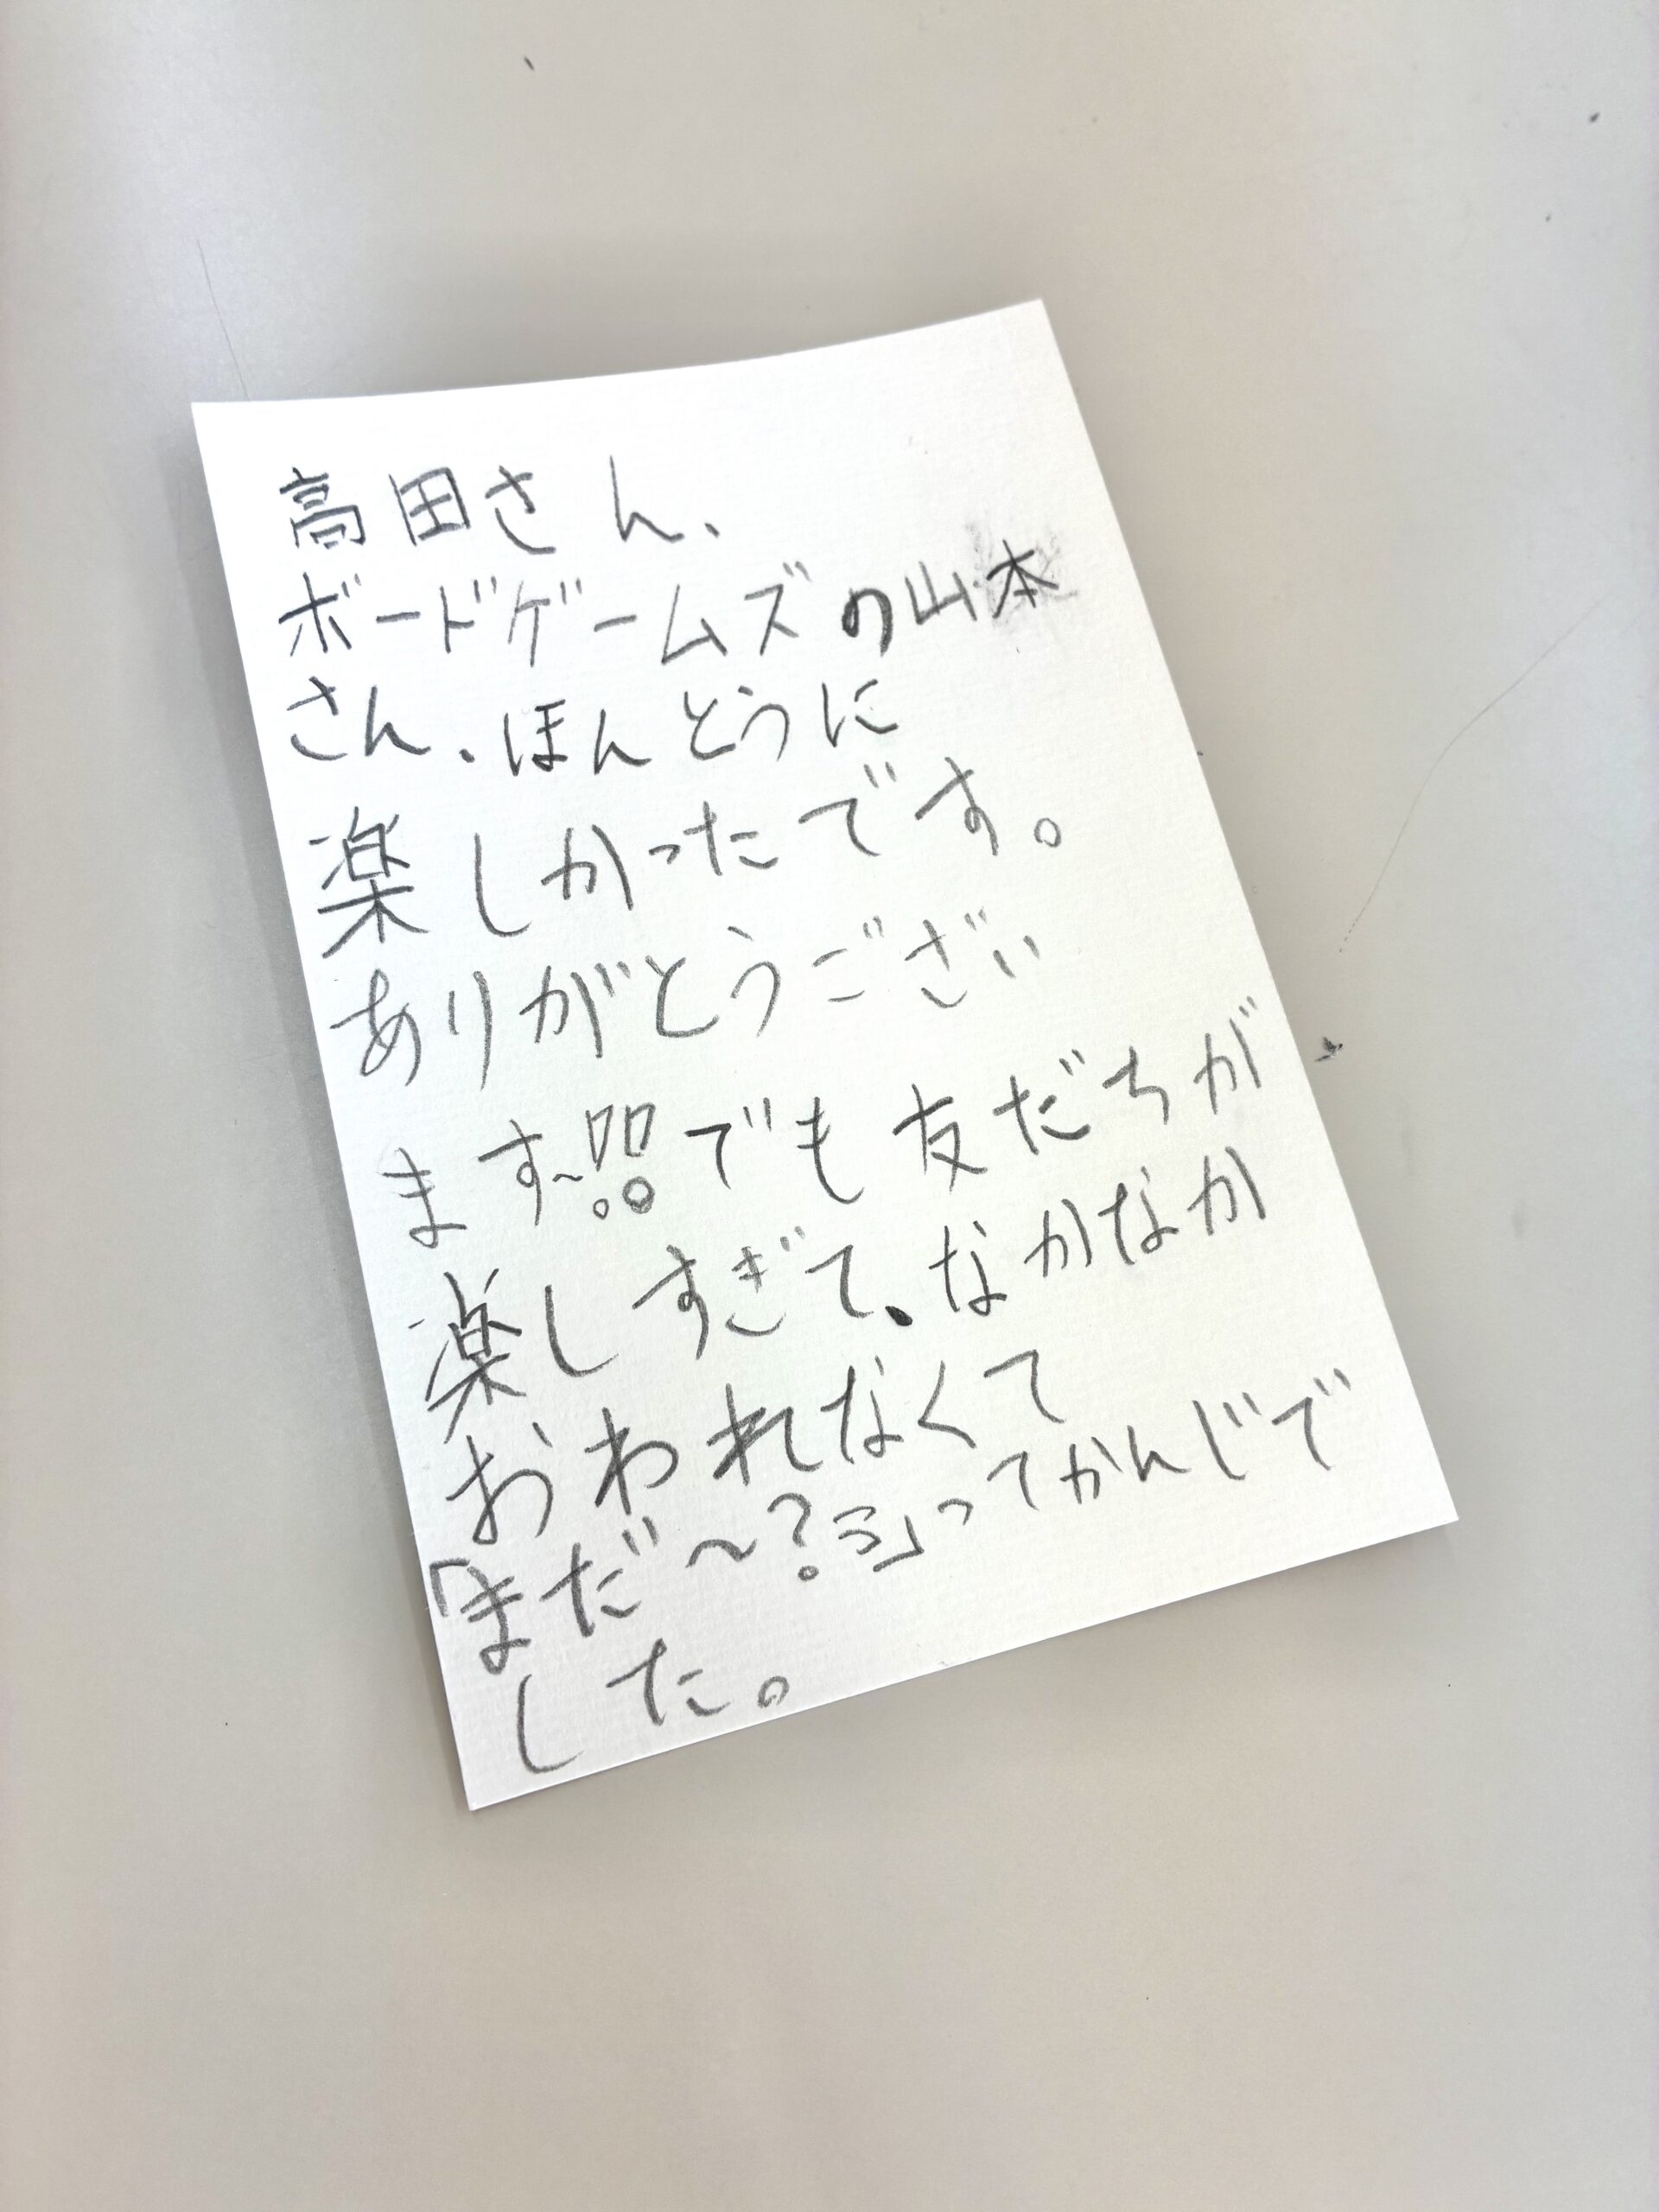 高田さん、
ボードゲームズの山本
さん、ほんとうに
楽しかったです。
ありがとうござい
ます~!!でも友だちが
楽しすぎて、なかなか
おわれなくて
「まだ～?ミ」ってかんじで
した。